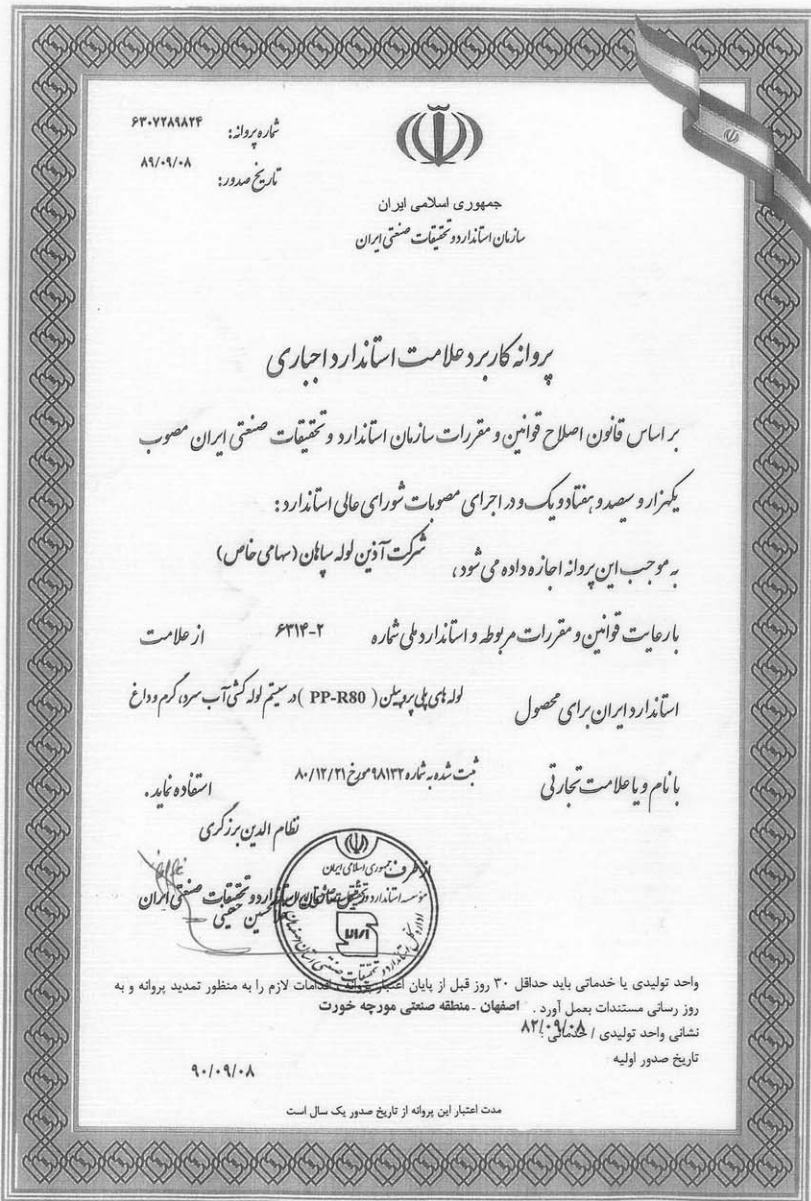 شماره پروانه: ۶۳۰۷۲۸۹۸۲۴
تاریخ صدور: ۸۹/۰۹/۰۸
جمهوری اسلامی ایران
سازمان استاندارد و تحقیقات صنعتی ایران
پروانه کاربرد علامت استاندارد اجباری
بر اساس قانون اصلاح قوانین و مقررات سازمان استاندارد و تحقیقات صنعتی ایران مصوب
یکهزار و سیصد و هفتاد و یک و در اجرای مصوبات شورای عالی استاندارد :
به موجب این پروانه اجازه داده می شود، شرکت آذین لوله سپاهان (سهامی خاص)
با رعایت قوانین و مقررات مربوطه و استاندارد ملی شماره ۶۳۱۴-۲ از علامت
استاندارد ایران برای محصول لوله های پلی پروپیلن ( PP-R80 ) در سیستم لوله کشی آب سرد، گرم و داغ
با نام و یا علامت تجارتی ثبت شده به شماره ۹۸۱۳۲ مورخ ۸۰/۱۲/۲۱ استفاده نماید .
نظام الدین برزگری
از طرف
جمهوری اسلامی ایران
استاندارد و تحقیقات صنعتی ایران
واحد تولیدی یا خدماتی باید حداقل ۳۰ روز قبل از پایان اعتبار پروانه ، اقدامات لازم را به منظور تمدید پروانه و به
روز رسانی مستندات بعمل آورد . اصفهان - منطقه صنعتی مورچه خورت
نشانی واحد تولیدی / خدماتی : ۸۲/۰۹/۰۸
تاریخ صدور اولیه
۹۰/۰۹/۰۸
مدت اعتبار این پروانه از تاریخ صدور یک سال است